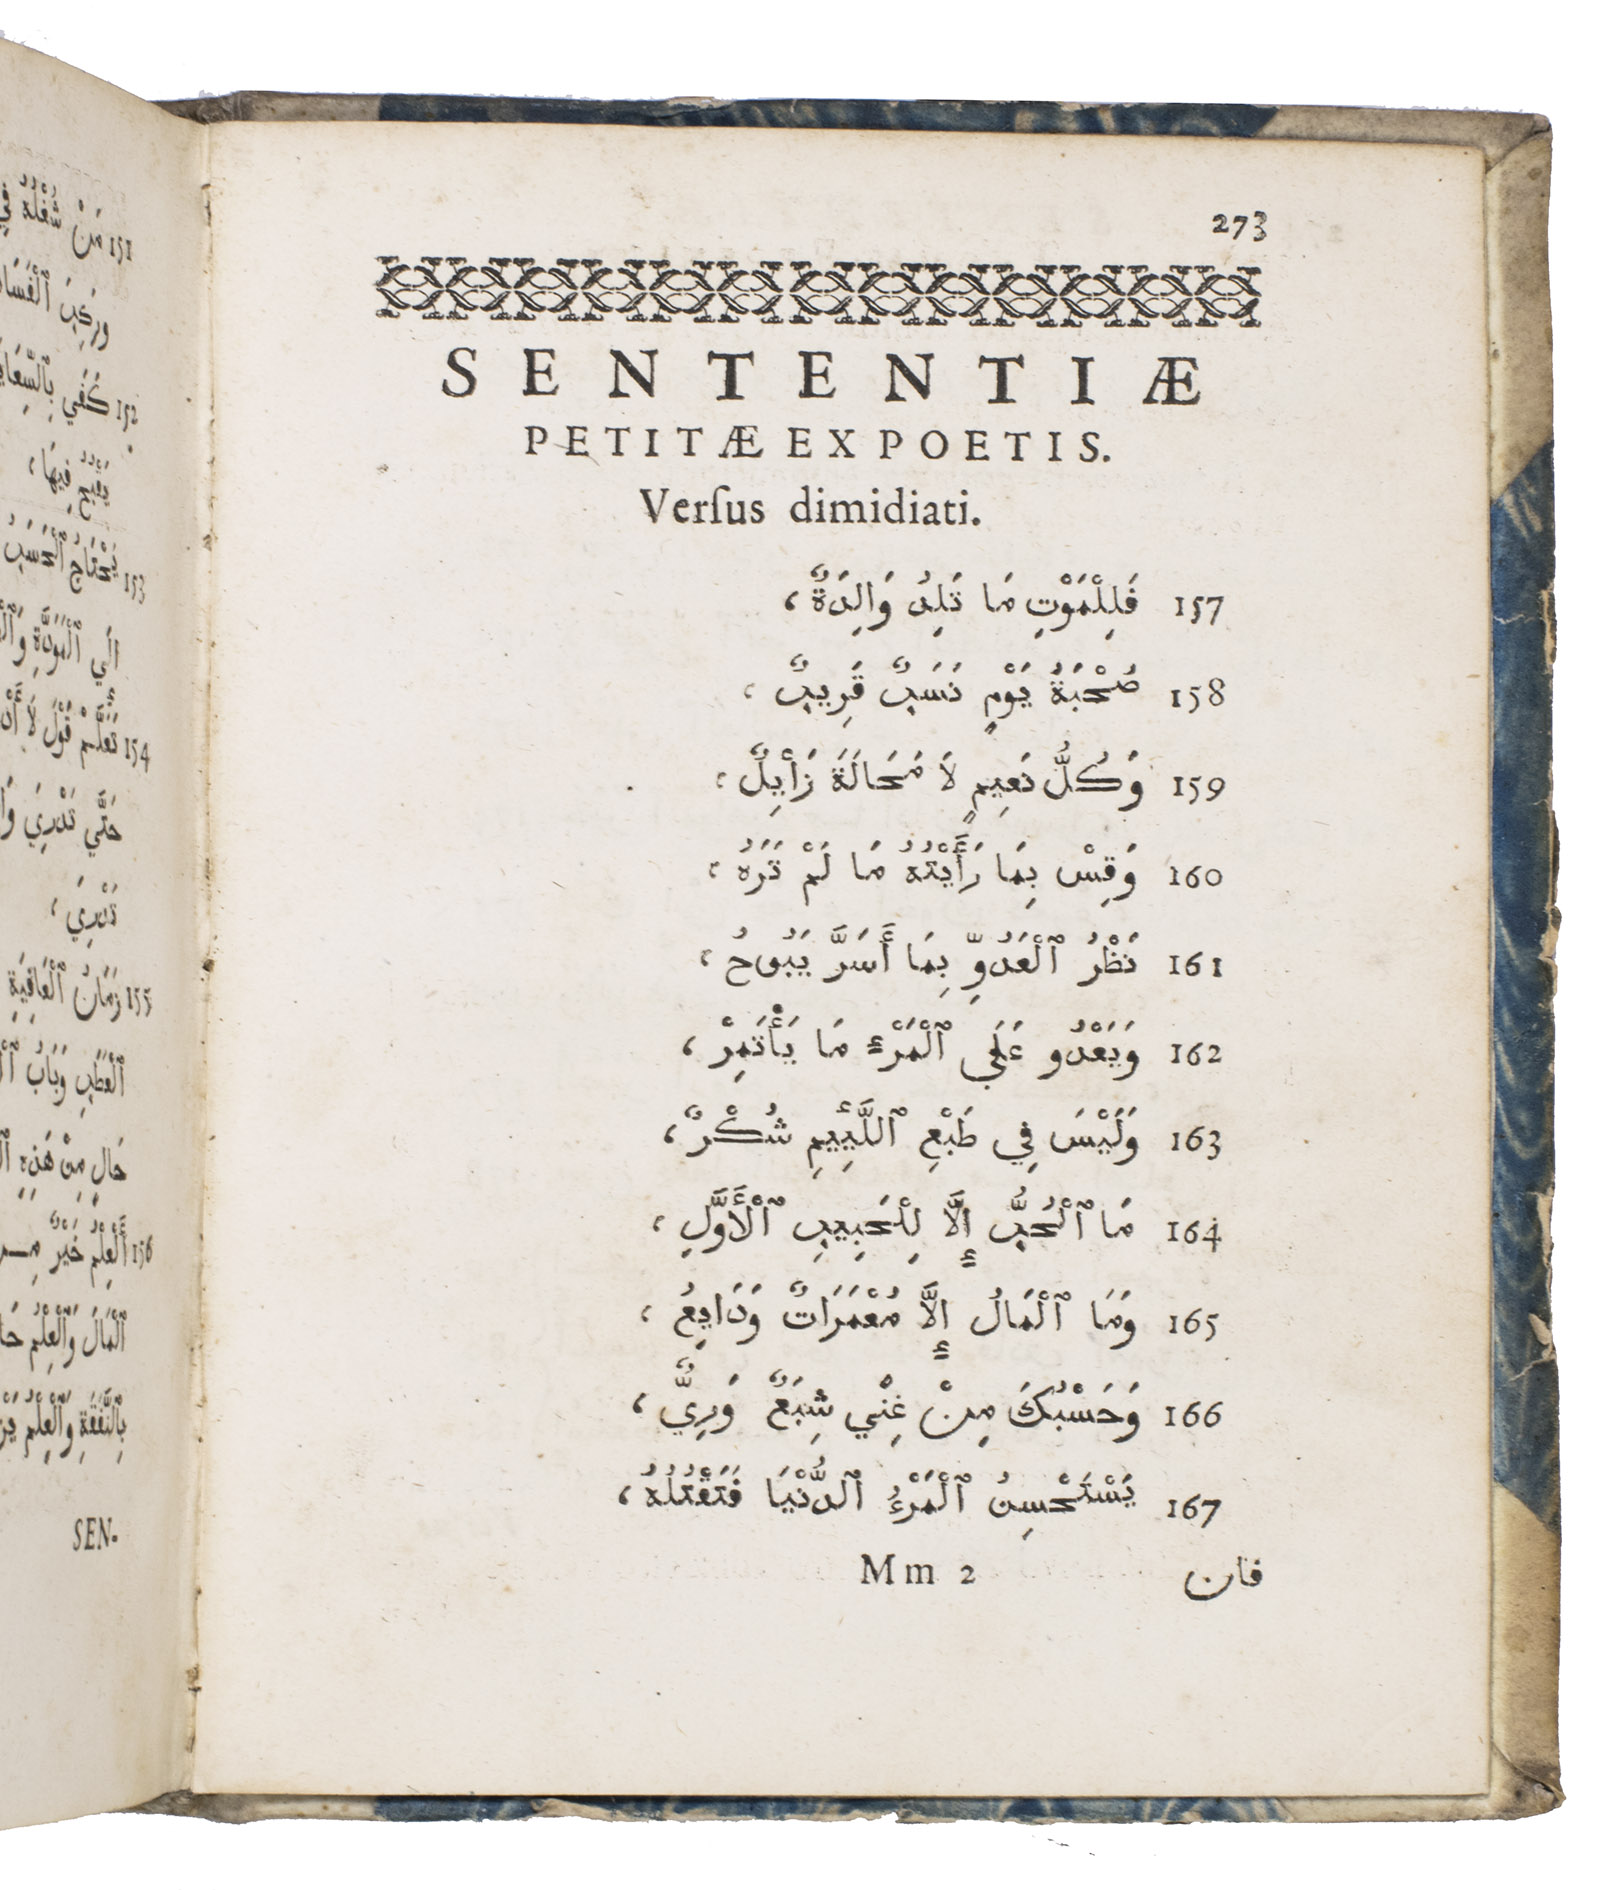 273
SENTENTIÆ
PETITÆ EX POETIS.
Verſus dimidiati.
157 فَلِلْمَوْتِ مَا تَلِدُ وَالِدَةٌ،
158 صُحْبَةُ يَوْمٍ نَسَبٌ قَرِيبٌ،
159 وَكُلُّ نَعِيمٍ لَا مَحَالَةَ زَأيِلٌ،
160 وَقِسْ بِمَا رَأَيْتُهُ مَا لَمْ تَرَهُ،
161 نَظْرُ ٱلْعَدُوِّ بِمَا أَسَرَّ يَبُوحُ،
162 وَيَعْدُو عَلَي ٱلْمَرْءِ مَا يَأْتَمِرْ،
163 وَلَيْسَ فِي طَبْعِ ٱللَّئِيمِ شُكْرٌ،
164 مَا ٱلْحُبُّ إِلَّا لِلْحَبِيبِ ٱلْأَوَّلِ،
165 وَمَا ٱلْمَالُ إِلَّا مُعْمَرَاتٌ وَدَايِعُ،
166 وَحَسْبُكَ مِنْ غِنْي شِبَعٌ وَرِيٌّ،
167 يَسْتَحْسِنُ ٱلْمَرْءُ ٱلدُّنْيَا فَتَقْتُلُهُ،
Mm 2
فان
151 مَنْ شُغْلُهُ فِي
وَرَكِبَ ٱلْفَسَا
152 كَفَي بِٱلسِّعَا
يَقْبُحُ فِيهَا،
153 يَحْتَاجُ ٱلْحَسَبُ
الَي ٱلْمَوَدَّةِ
154 تَعَلَّمْ قَوْلَ لَا أَنْ
حَتَّي تَدْرِيَ
تَدْرِيَ،
155 زَمَانُ ٱلْعَافِيَةِ
ٱلْعَطَبِ وَبَابُ
حَالٍ مِنْ هَذِهِ
156 أَلْعِلْمُ خَيْرٌ
ٱلْمَالَ وَٱلْعِلْمُ
بِٱلنَّفَقَةِ وَٱلْعِلْمُ
SEN-